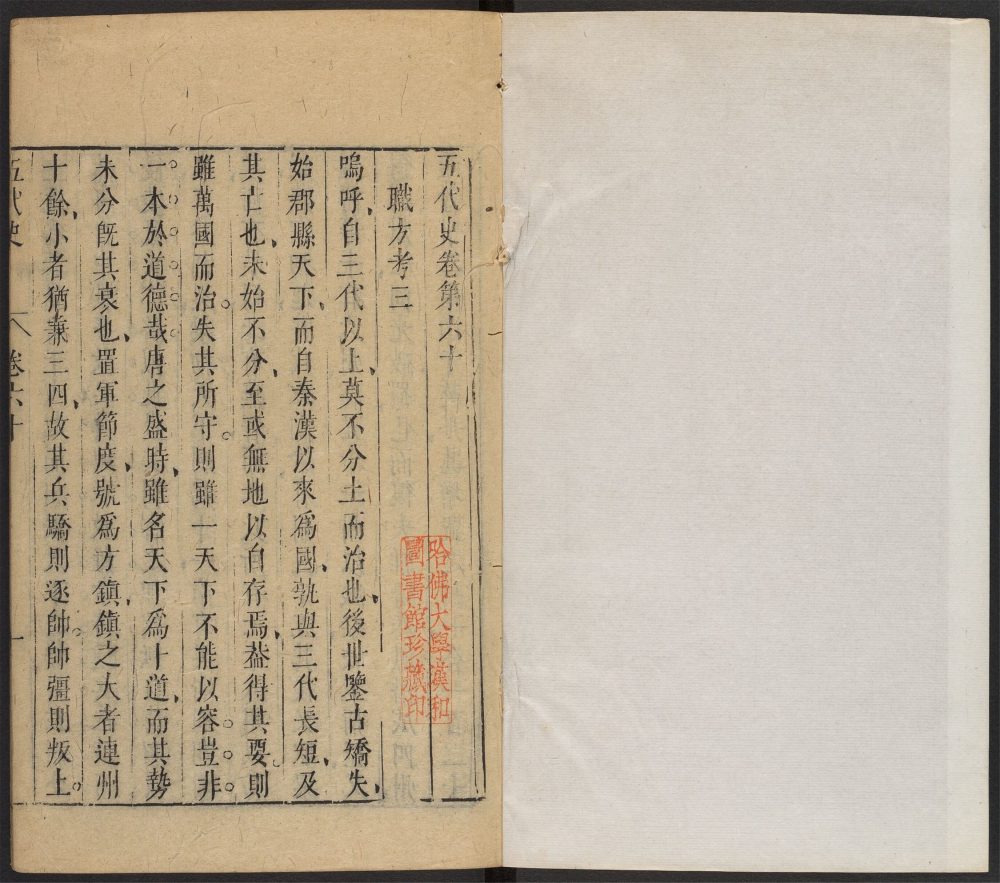 五代史卷第六十
職方考三
嗚呼自三代以上莫不分土而治也後世鑒古矯失
始郡縣天下而自秦漢以來爲國孰與三代長短及
其亡也未始不分至或無地以自存焉葢得其要則
雖萬國而治失其所守則雖一天下不能以容豈非
一本於道德哉唐之盛時雖名天下爲十道而其勢
未分旣其衰也置軍節度號爲方鎭鎭之大者連州
十餘小者猶兼三四故其兵驕則逐帥帥彊則叛上
五代史
卷六十
一
哈佛大學漢和
圖書館珍藏印